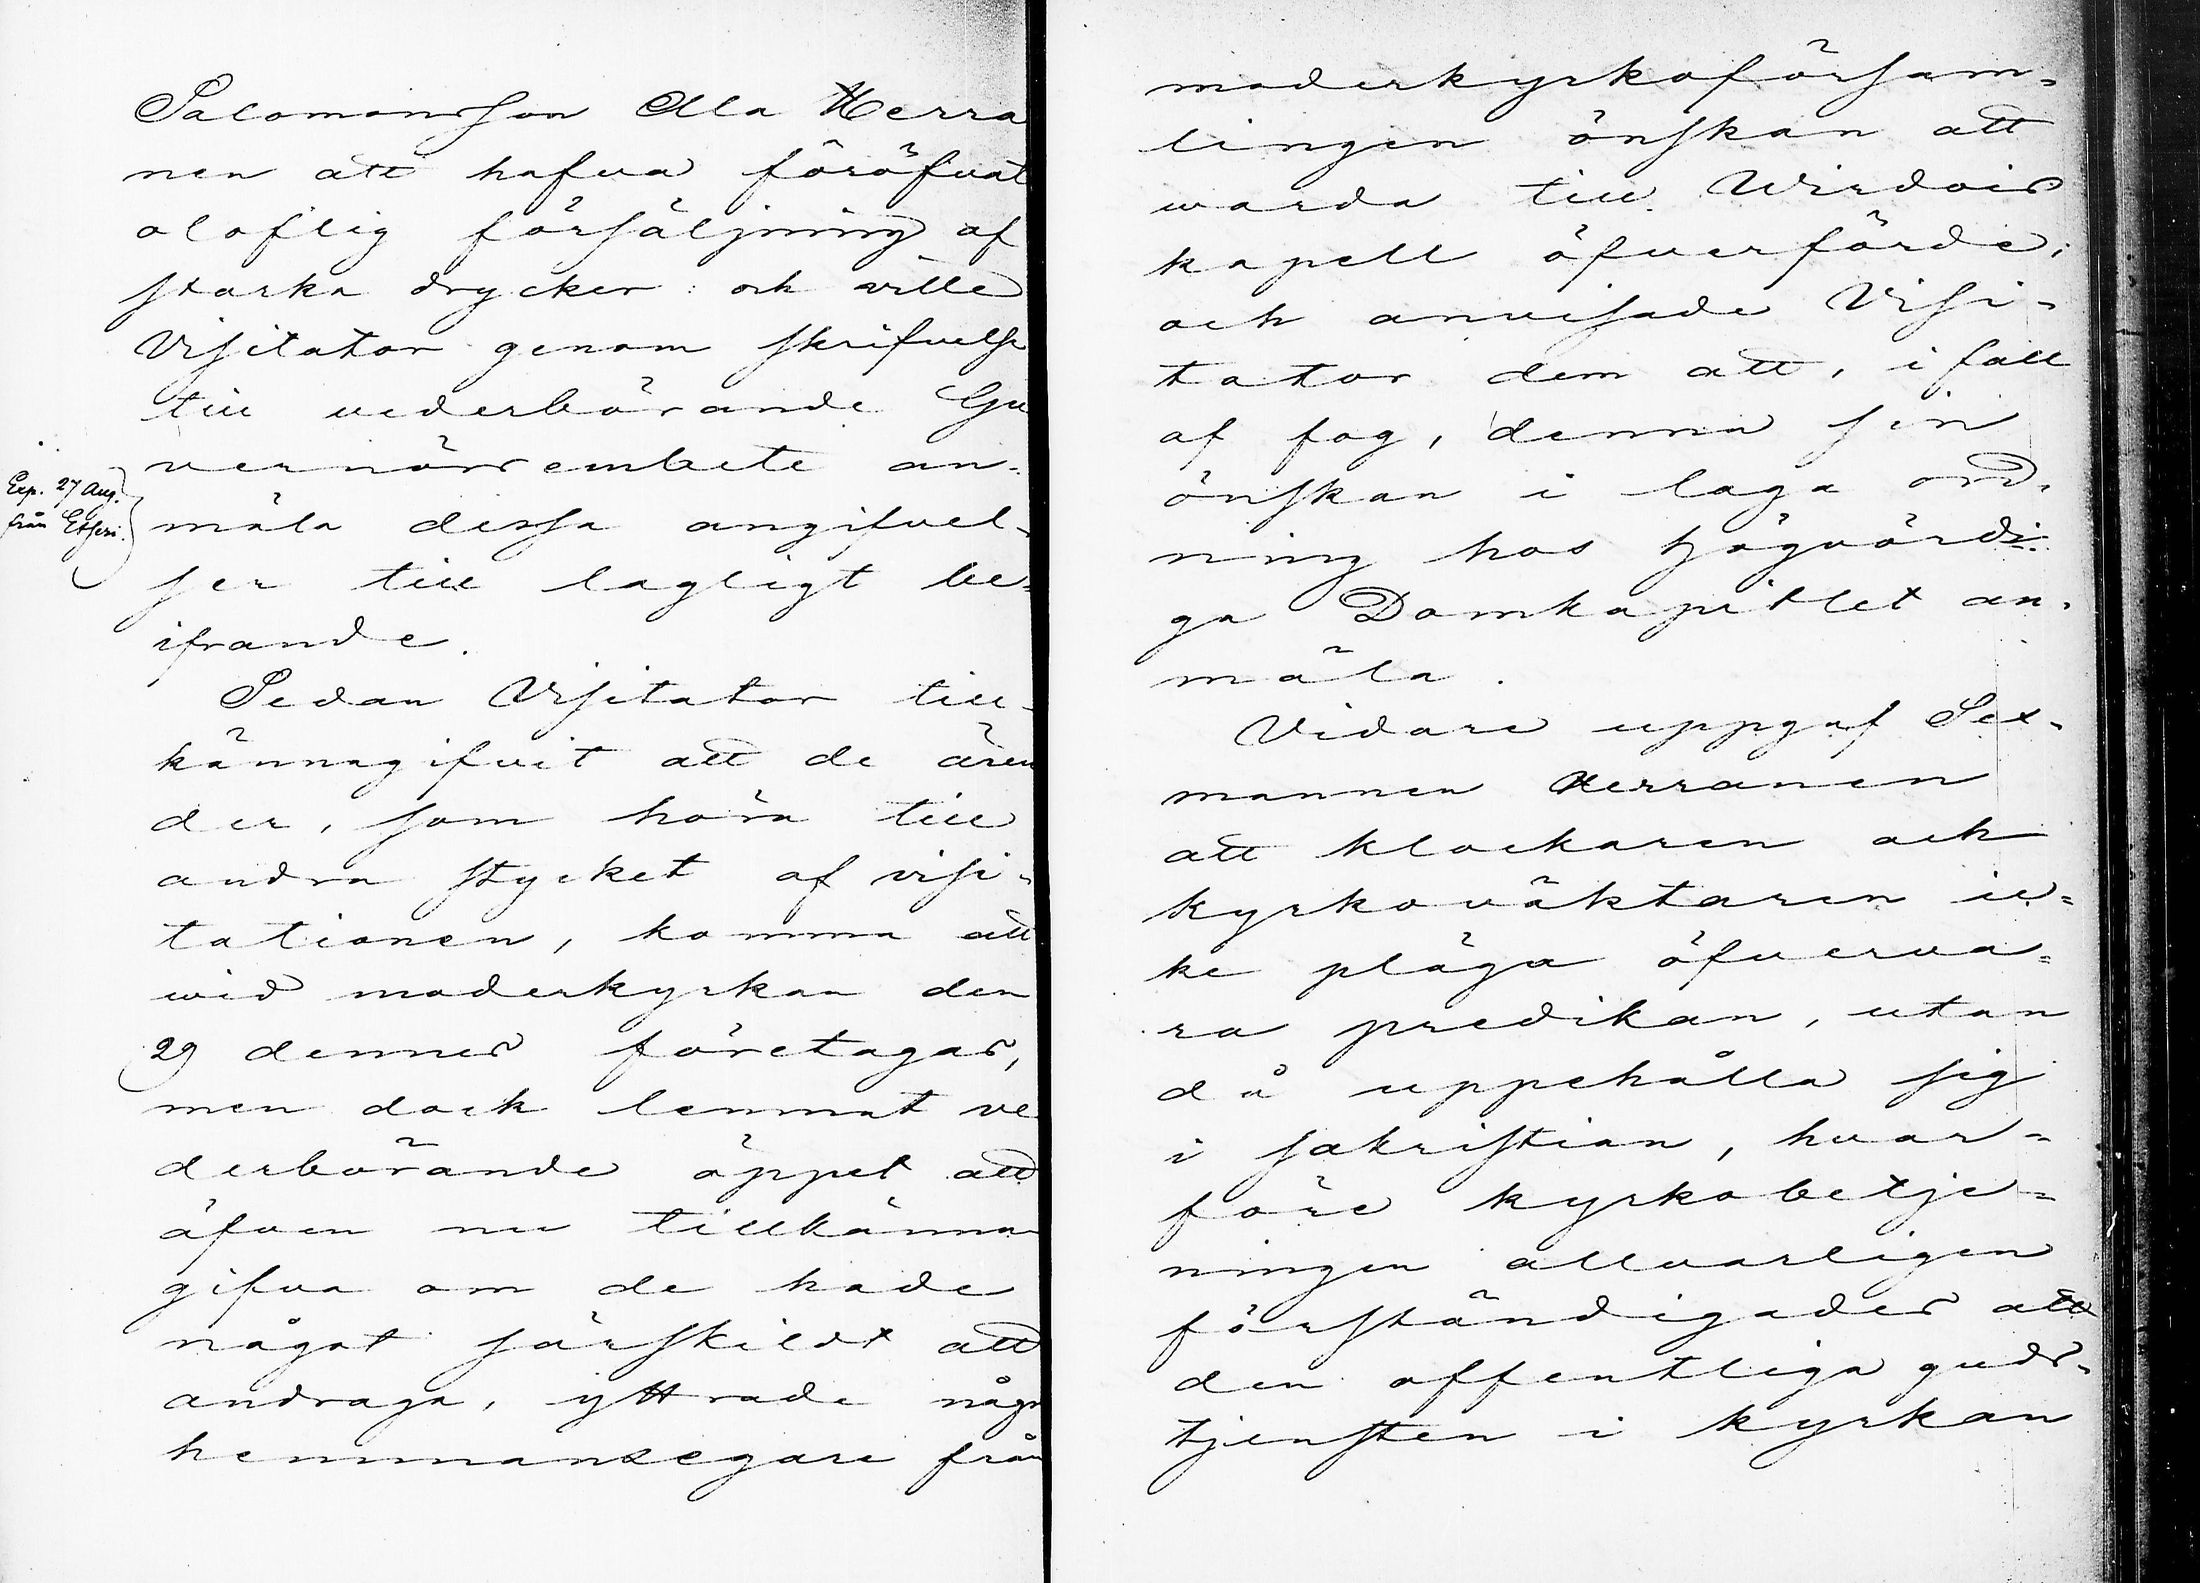 Salomonsson Ala Herra
nen att hafva föröfvat
oloflig försäljning af
starka drycker: och ville
Visitator genom skrifvelse
till vederbörande Gu
vernörsembete an-
Exp. 27 Aug.
från Etseri.
mäla dessa angifvel-
ser till lagligt be-
ifrande.
Sedan Visitator till-
kännagifvit att de ären
der, som höra till
andra stycket af visi-
tationen, komma att
wid moderkyrkan den
29 dennes företagas,
men dock lemnat ve
derbörande öppet att
äfven nu tillkänna
gifva om de hade
något särskildt att
andraga, yttrade någr
hemmansegare från
moderkyrkoförsam-
lingen önskan att
warda till Wirdois
kapell öfverförde;
och anvisade Visi-
tator dem att, i fall
af fog, denna sin
önskan i laga ord-
ning hos högvördi-
ga Domkapitlet an-
mäla.
Vidare uppgaf Sex-
mannen Herranen
att klockaren och
kyrkoväktaren ic-
ke pläga öfverva-
ra predikan, utan
då uppehålla sig
i sakristian, hvar-
före kyrkobetje-
ningen allvarligen
förständigades att
den offentliga guds-
tjensten i kyrkan